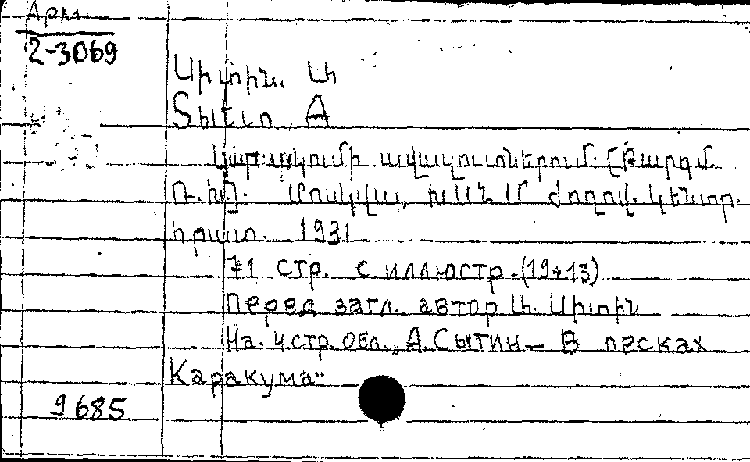 Арм
2-3069
Սիտին, Ա
Sытin A
Կարակումի ավազուտներում. (Թարգմ.
Ռ. Խ.) Մոսկվա, ԽՍՀՄ Ժողով. Կենտր.
հրատ. 1931
71 стр. с иллюстр. (19*13)
Перед загл. автор Ա. Սիտին
На. 4 стр. обл., А. Сытин — В песках
Каракума"
9685